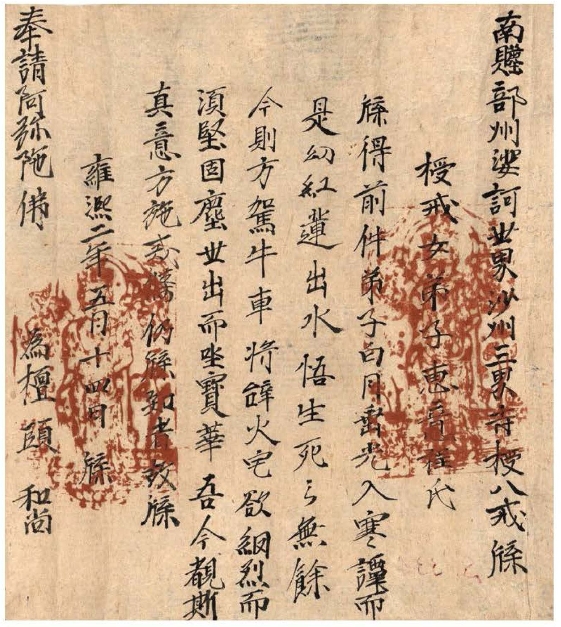 南贍部州娑訶世界沙州三界寺授八戒牒
授戒女弟子惠 氏
牒得前件弟子白月 光入寒譚而
是幼紅蓮出水悟生死之無餘
今則方駕牛車將辞火宅欲細烈而
須堅固塵世出而坐寶華吾今覩斯
真意方施戒條仍牒知者故牒
雍熙二年五月十四日牒
奉請阿弥陁佛為檀頭和尚